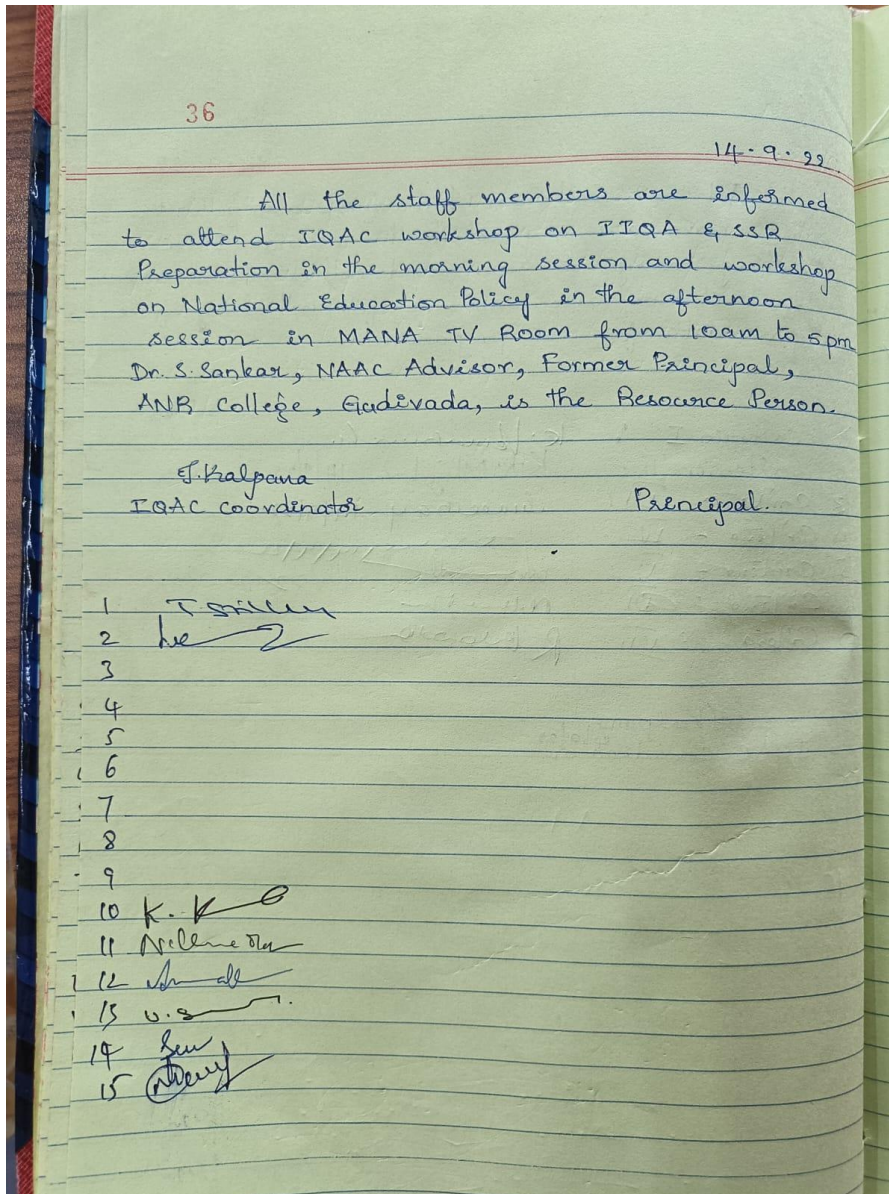 36
14.9.22.
All the staff members are informed
to attend IQAC workshop on IIQA & SSR
Preparation in the morning session and workshop
on National Education Policy in the afternoon
session in MANA TV Room from 10am to 5pm
Dr. S. Sankar, NAAC Advisor, Former Principal,
ANR College, Gudivada, is the Resource Person.
J. Kalpana
IQAC coordinator Principal.
1
2
3
4
5
6
7
8
9
10 K. K
11
12
13 U.S
14
15